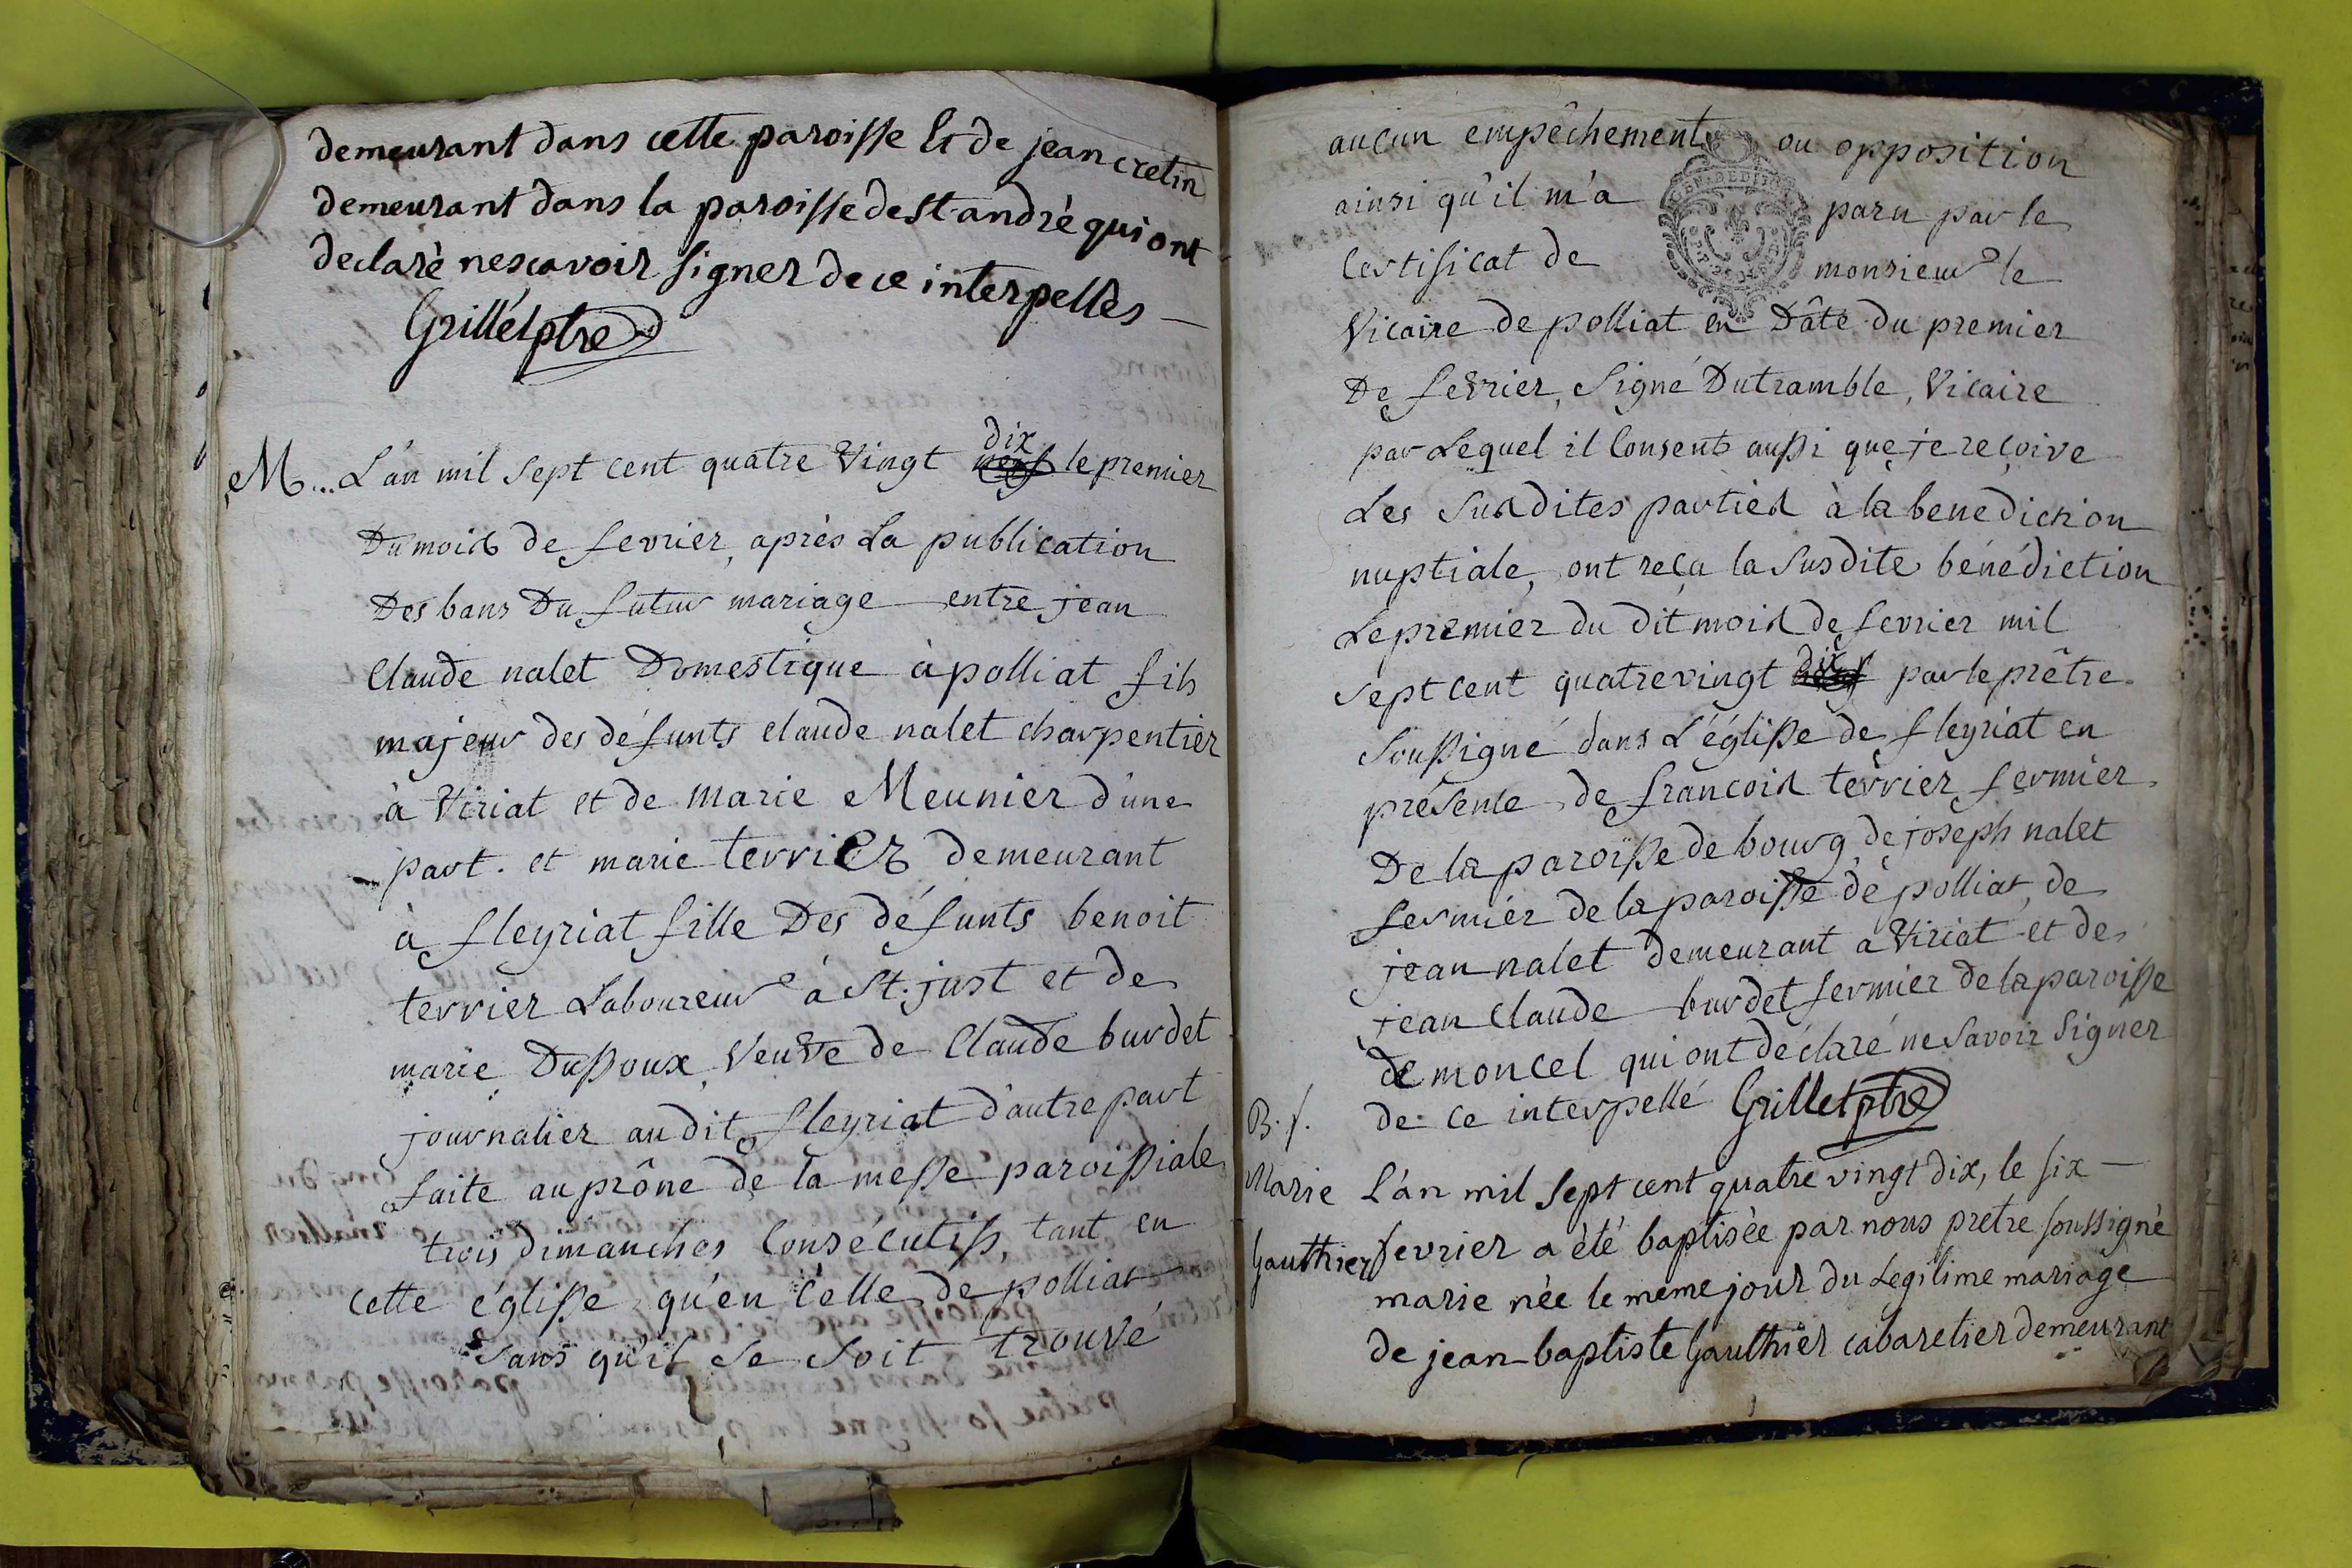 demeurant dans cette paroisse Et de jean cretin
demeurant dans la paroisse de St andrè qui ont
declarè nesçavoir signer de ce interpellès
Grillet ptre
dix
M... L'an mil sept cent quatre vingt neuf le premier
Du mois de fevrier, après La publication
Des bans Du futur mariage entre jean
Claude nalet Domestique à polliat fils
majeur des défunts claude nalet charpentier
à Viriat et de marie Meunier d'une
part. et marie terrier demeurant
à fleyriat fille Des défunts benoit
terrier Laboureur à St. just et de
marie Dussoux, Veuve de Claude burdet
journalier au dit fleyriat d'autre part
faite au prône de la messe paroissiale
trois dimanches Consécutifs, tant en
cette église qu'en celle de polliat
sans qu'il se soit trouvé
aucun empêchement ou opposition
ainsi qu'il m'a paru par le
Certificat de monsieur le
Vicaire de polliat en Dâte du premier
De fevrier, signé Dutramble, Vicaire
par Lequel il Consent aussi que je reçoive
Les susdites parties à la benediction
nuptiale, ont reçu la susdite bénédiction
Le premier du dit mois de fevrier mil
dix
sept cent quatre vingt neuf par le prêtre
soussigné dans L'église de fleyriat en
présence de francois terrier fermier
De la paroisse de bourg, de joseph nalet
fermier de la paroisse de polliat, de
jean nalet demeurant a Viriat et de
jean Claude burdet fermier de la paroisse
de moncel qui ont déclaré ne savoir signer
de ce interpellé Grillet ptre
B. f.
Marie
Gauthier
L'an mil sept cent quatre vingt dix, le six
fevrier a èté baptisèe par nous pretre soussignè
marie nèe le meme jour du Legitime mariage
de jean-baptiste Gauthier cabaretier demeurant